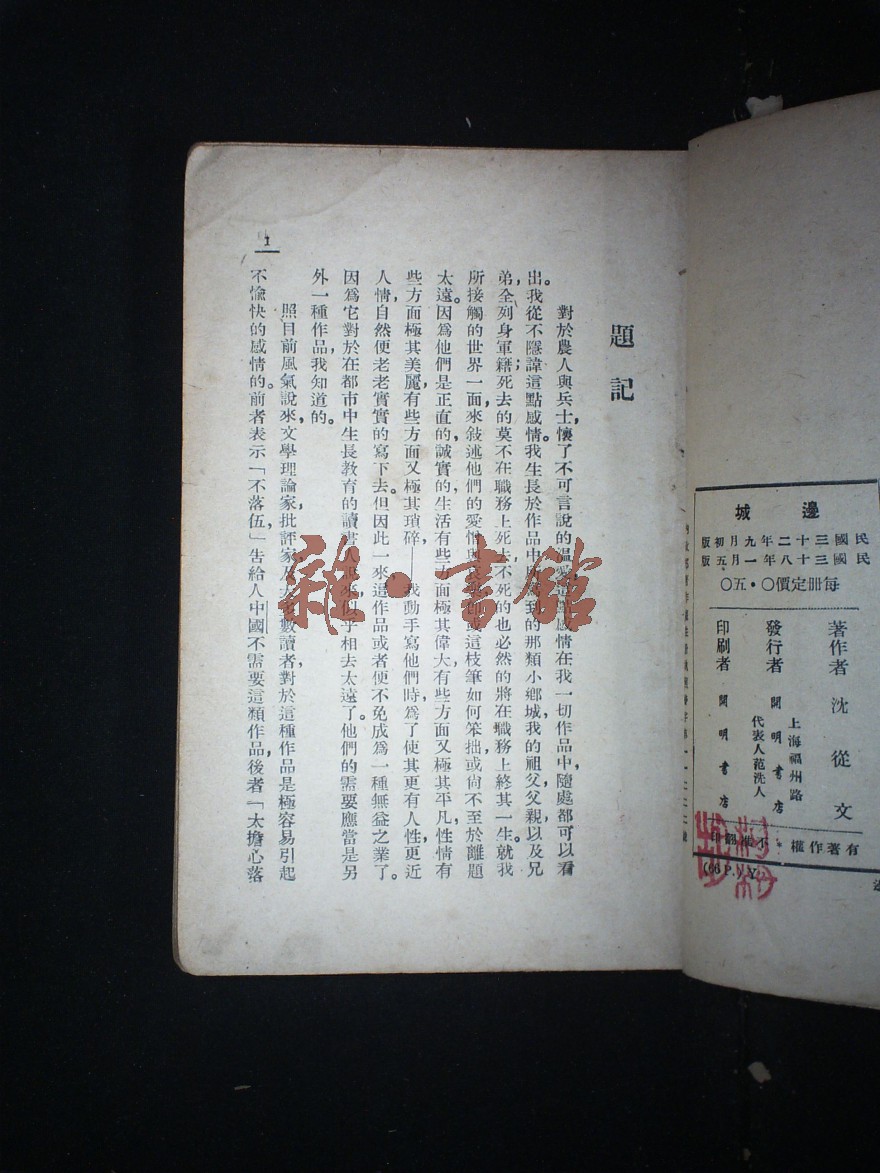 邊城
民國三十二年九月初版
民國三十八年一月五版
每冊定價〇·五〇
著作者 沈從文
上海福州路
發行者 開明書店
代表人范洗人
印刷者 開明書店
有著作權·不准翻印
(66 P.) Y
題記
對於農人與兵士，懷了不可言說的溫愛，這點感情在我一切作品中，隨處都可以看
出。我從不隱諱這點感情。我生長於作品中所寫到的那類小鄉城，我的祖父，父親，以及兄
弟，全列身軍籍；死去的莫不在職務上死去，不死的也必然的將在職務上終其一生。就我
所接觸的世界一面，來敍述他們的愛憎與哀樂，卽或這枝筆如何笨拙，或尚不至於離題
太遠。因爲他們是正直的，誠實的，生活有些方面極其偉大，有些方面又極其平凡，性情有
些方面極其美麗，有些方面又極其瑣碎，——我動手寫他們時，爲了使其更有人性，更近
人情，自然便老老實實的寫下去。但因此一來，這作品或者便不免成爲一種無益之業了。
因爲它對於在都市中生長教育的讀書人說來，似乎相去太遠了。他們的需要應當是另
外一種作品，我知道的。
照目前風氣說來，文學理論家，批評家，及大多數讀者，對於這種作品是極容易引起
不愉快的感情的。前者表示「不落伍」，告給人中國不需要這類作品，後者「太擔心落
1
雜·書館